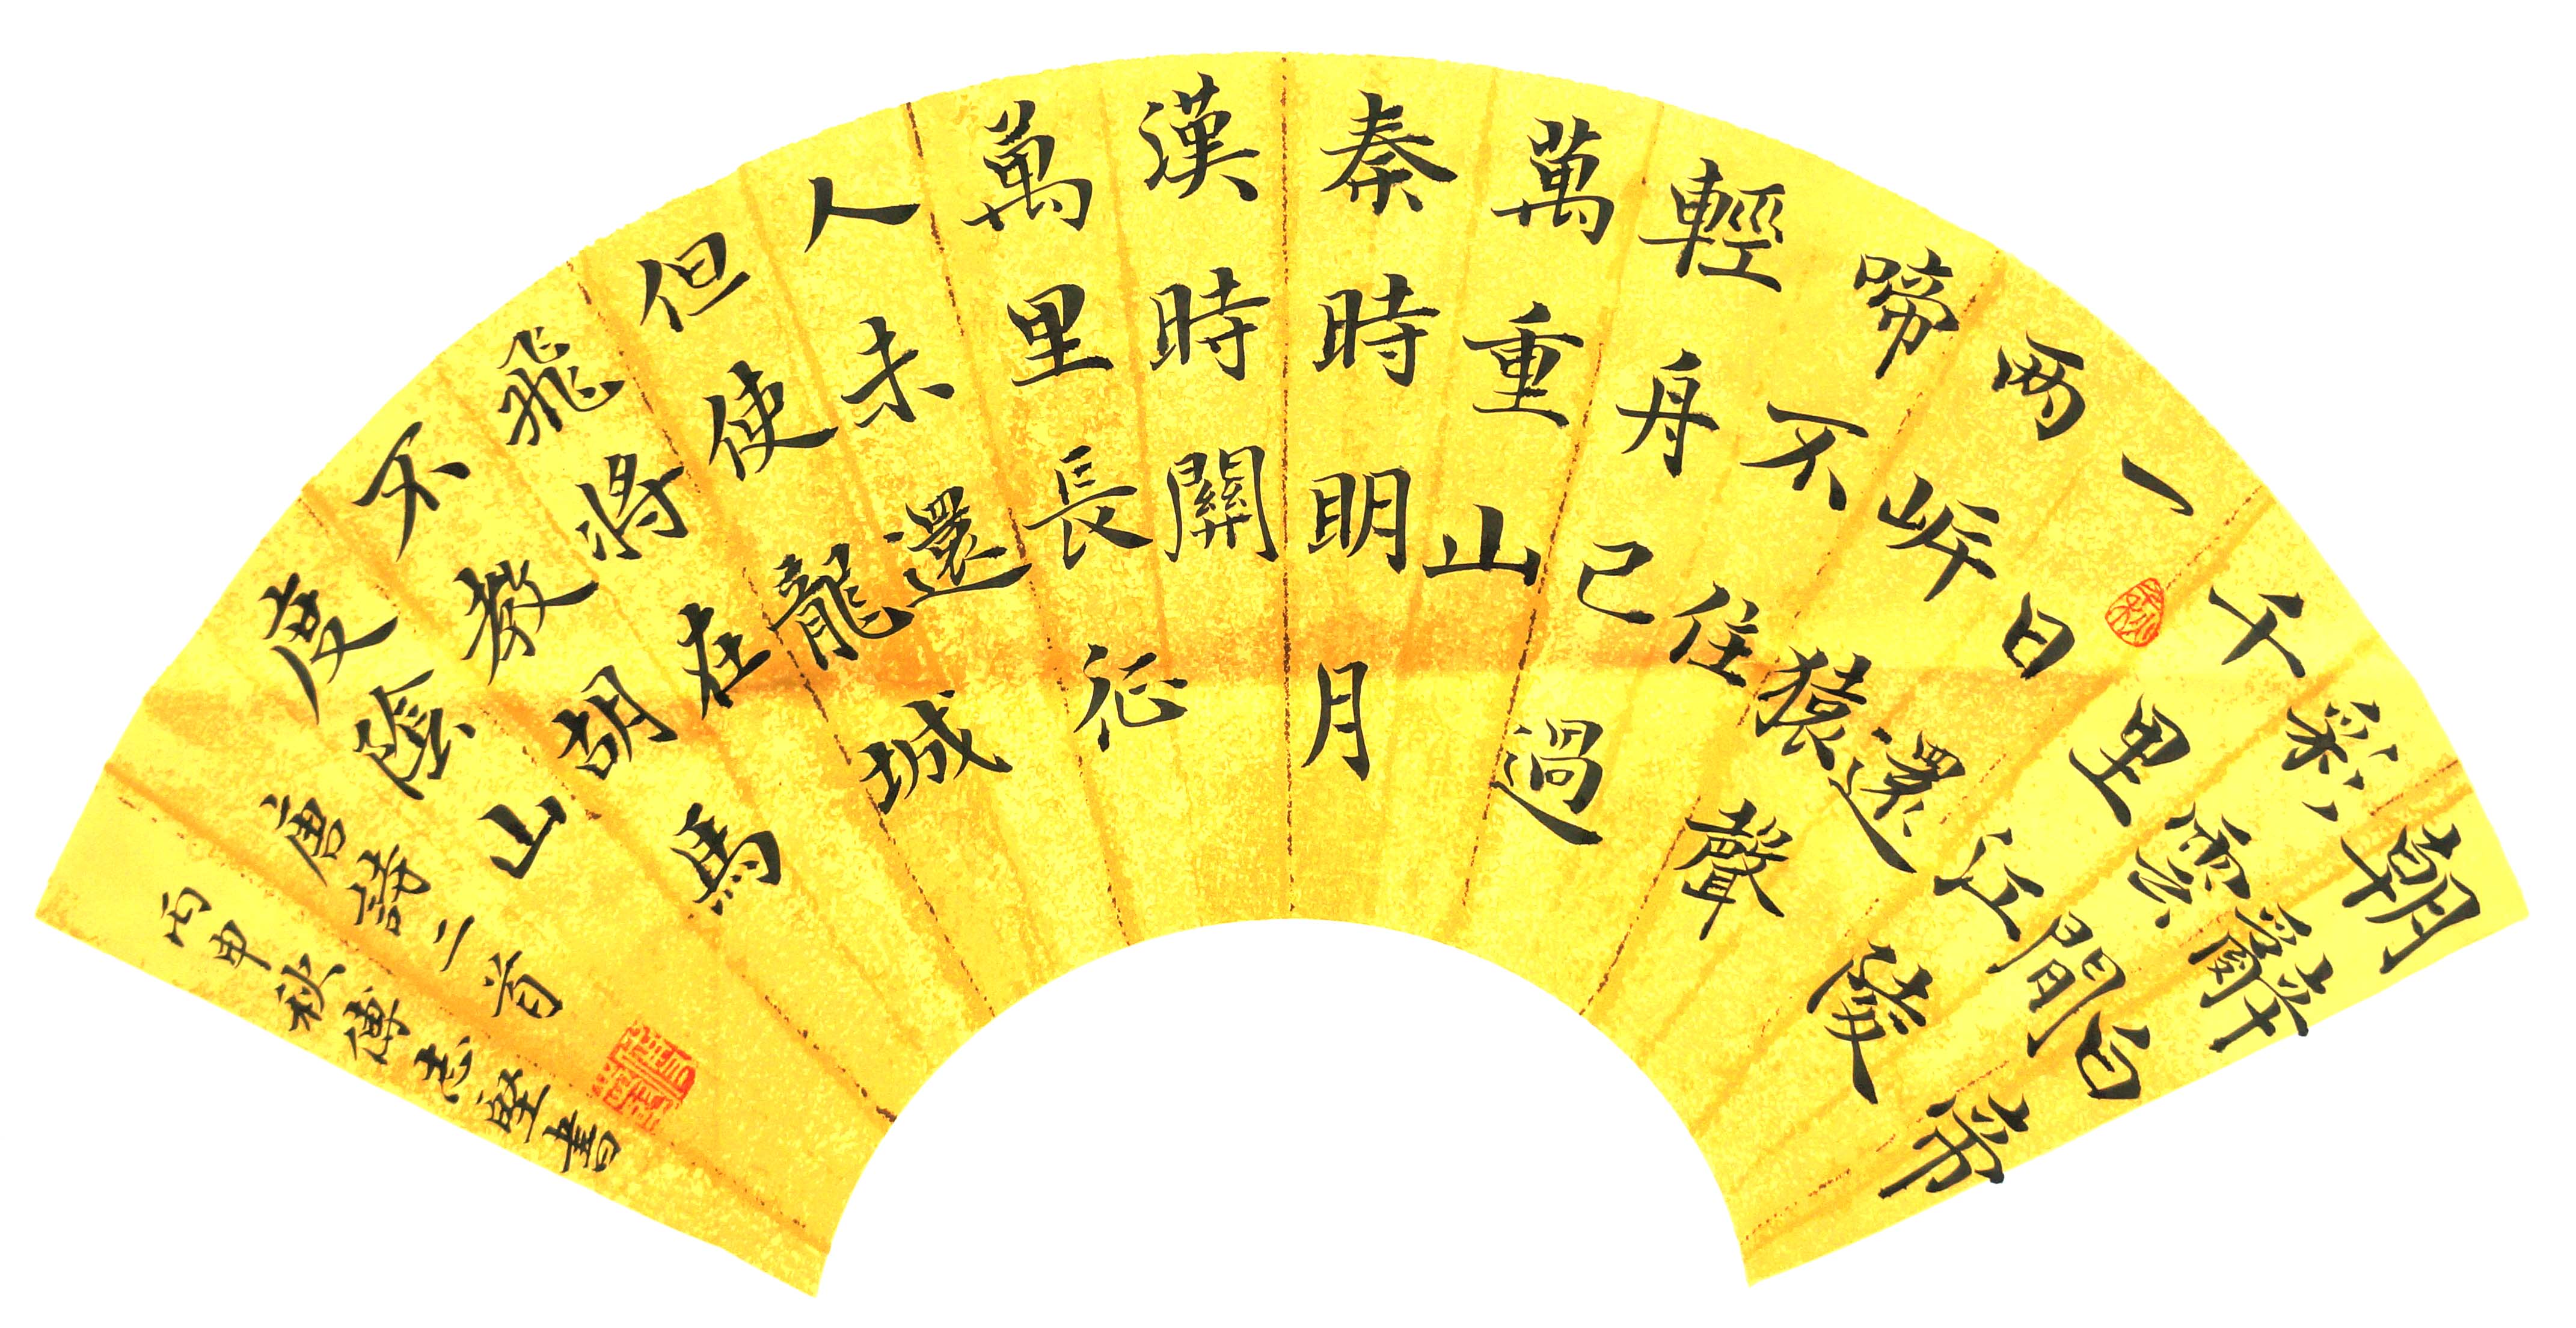 朝辭白帝
彩雲間
千里江陵
一日還
两岸猿聲
啼不住
輕舟已過
萬重山
秦時明月
漢時關
萬里長征
人未還
但使龍城
飛將在
不教胡馬
度陰山
唐詩二首
丙申秋傅志堅書